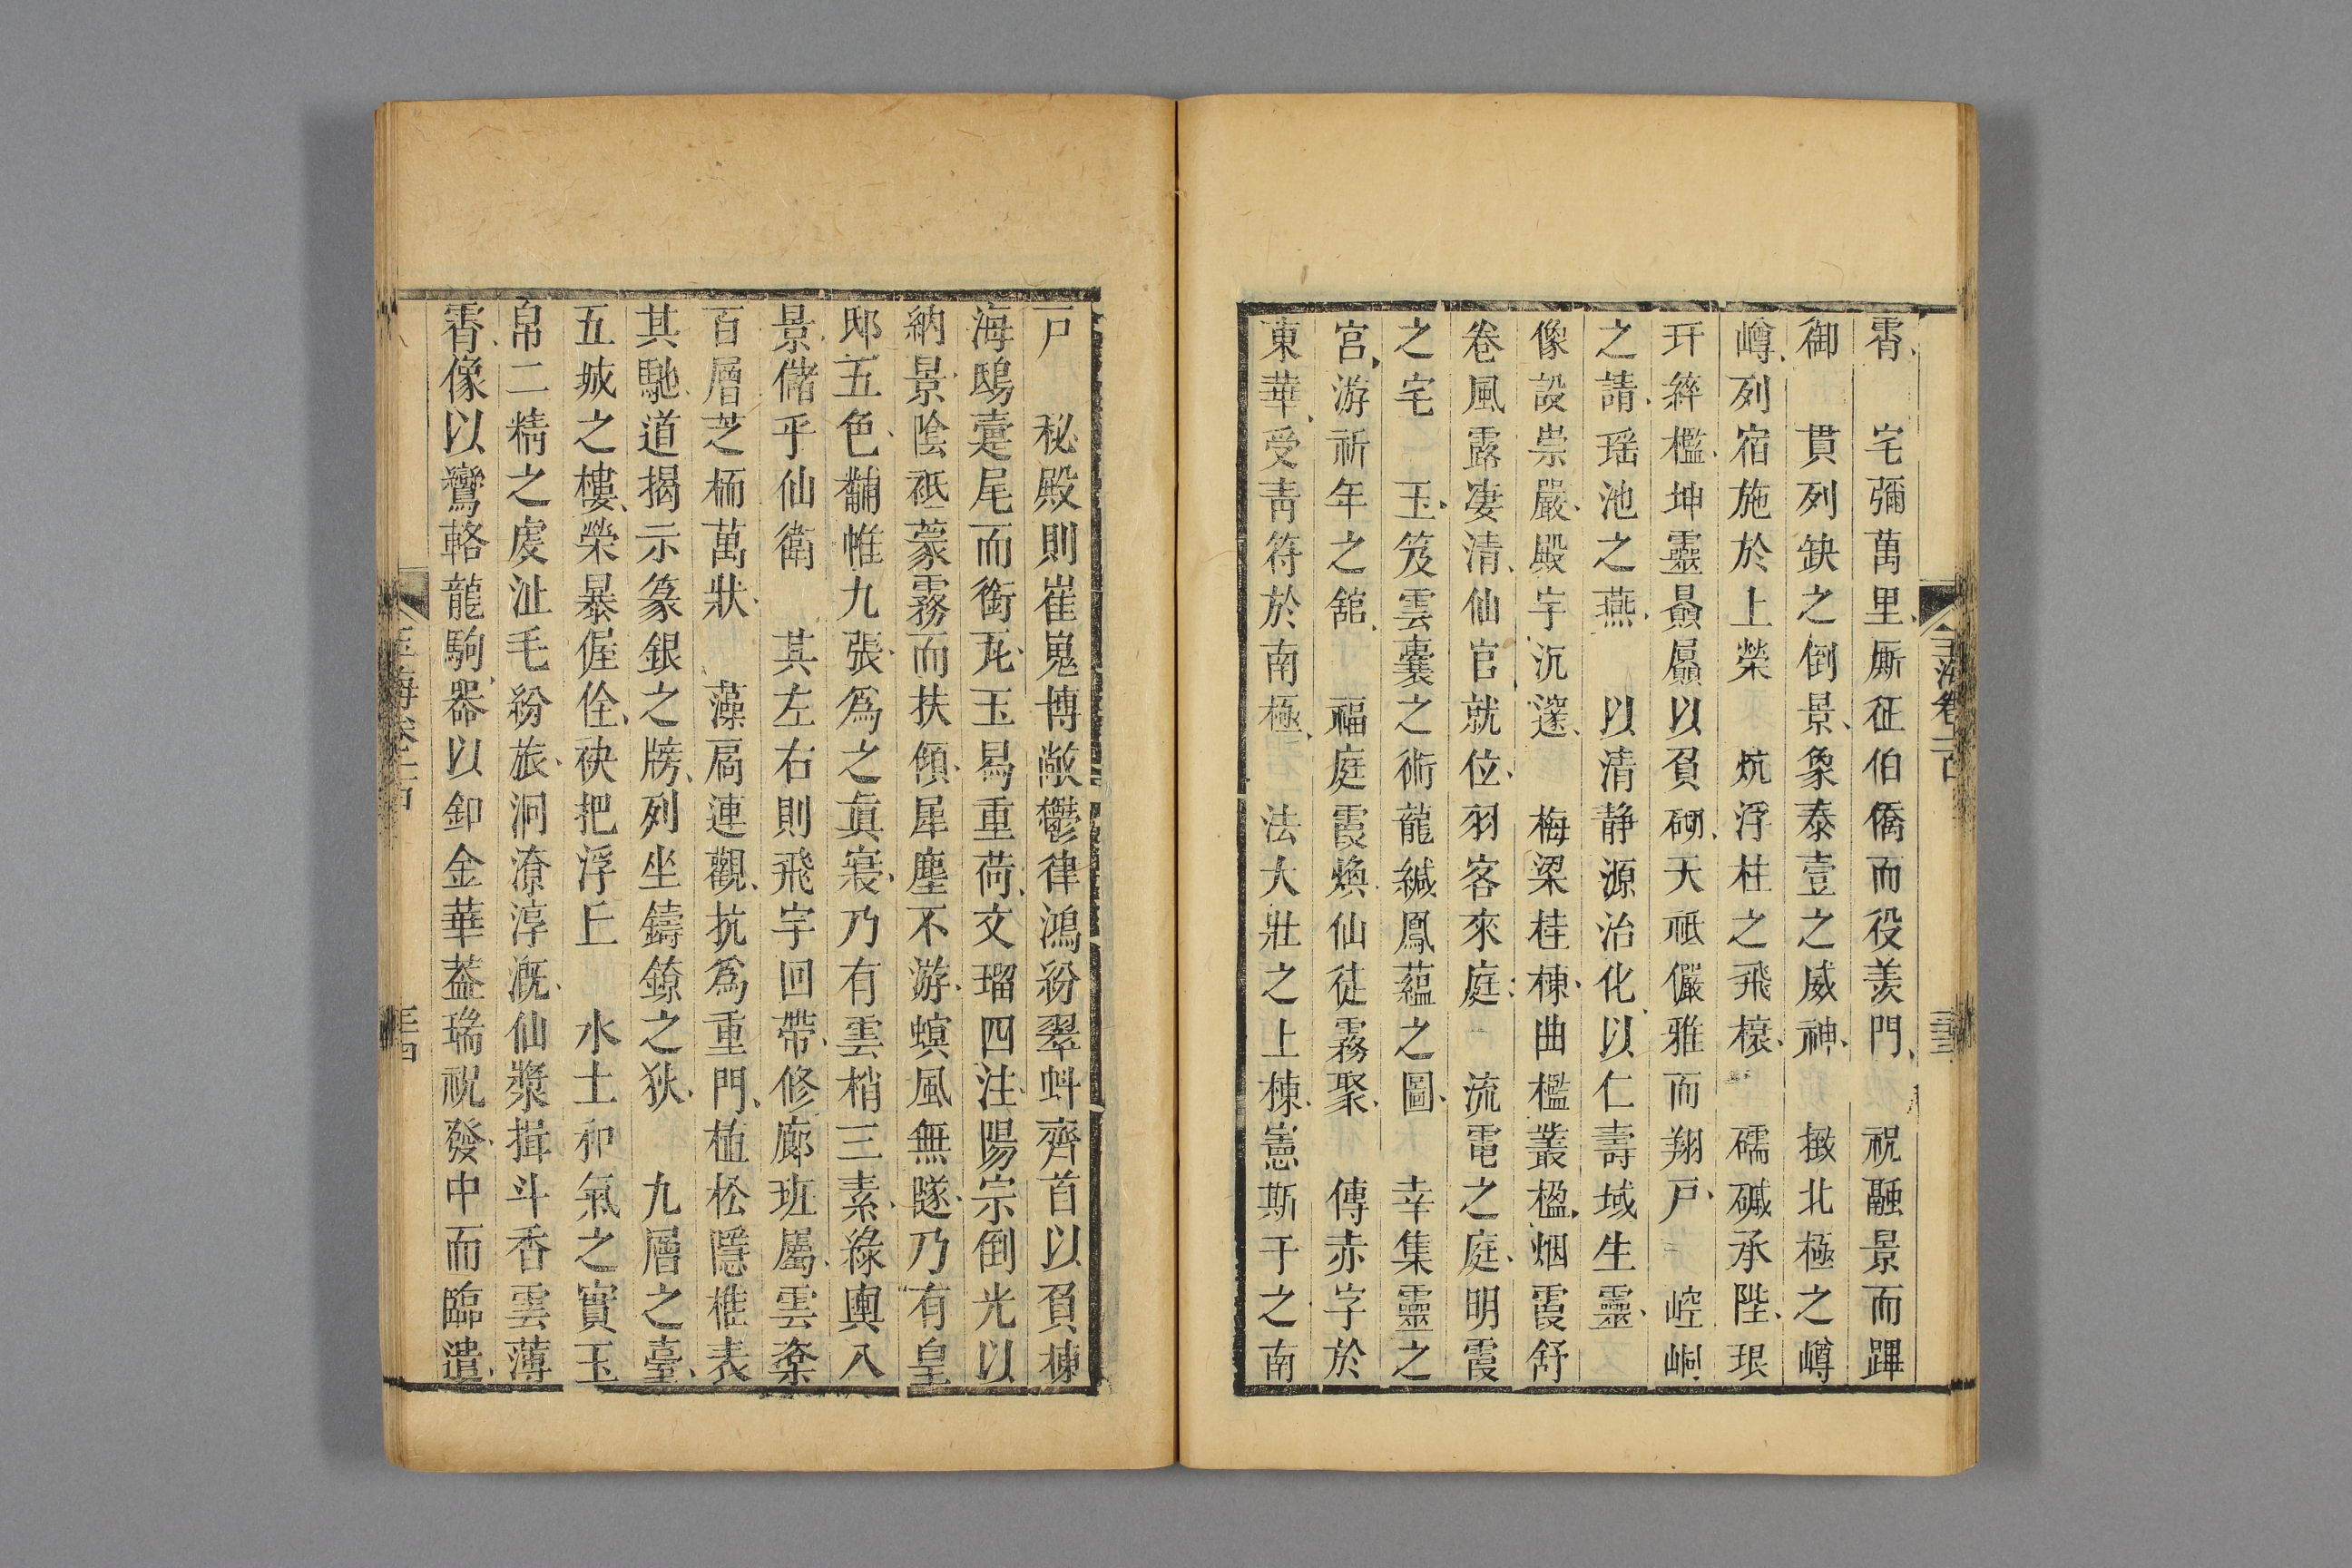 霄 宅彌萬里厮征伯僑而役羨門 祝融景而蹕
御 貫列缺之倒景象泰壹之威神 擬北極之嶟
嶟列宿施於上榮 炕浮柱之飛榱 礝碱承陛珉
玕綷檻坤靈贔屭以負砌天祗儼雅而翔戶 崆峒
之請瑶池之燕 以清静源治化以仁壽域生靈
像設崇嚴殿宇沉邃 梅梁桂棟曲檻叢楹烟霞舒
卷風露凄清仙官就位羽客來庭 流電之庭明霞
之宅 玉笈雲囊之術龍緘鳳蘊之圖 幸集靈之
宫游祈年之舘 福庭霞煥仙徒霧聚 傳赤字於
東華受青符於南極 法大壯之上棟憲斯干之南
戸 秘殿則崔嵬博敞鬱律鴻紛翠虯齊首以負棟
海鴟疐尾而銜甍玉舄重荷文瑠四注陽宗倒光以
納景陰祗蒙霧而扶傾犀塵不游螟風無隧乃有皇
邸五色黼帷九張爲之眞寢乃有雲梢三素綠輿八
景儲乎仙衛 其左右則飛宇回帶修廊班屬雲楶
百層芝栭萬狀 藻扃連觀抗爲重門植松隱椎表
其馳道揭示篆銀之牓列坐鑄鐐之狄 九層之臺
五城之樓榮暴偓佺袂把浮丘 水土和氣之實玉
帛二精之䖍沚毛紛旅泂潦淳溉仙漿揖斗香雲薄
霄像以鸞輅龍駒器以釦金華葢瑞祝發中而臨遣
玉海卷一百
三十三
三十四